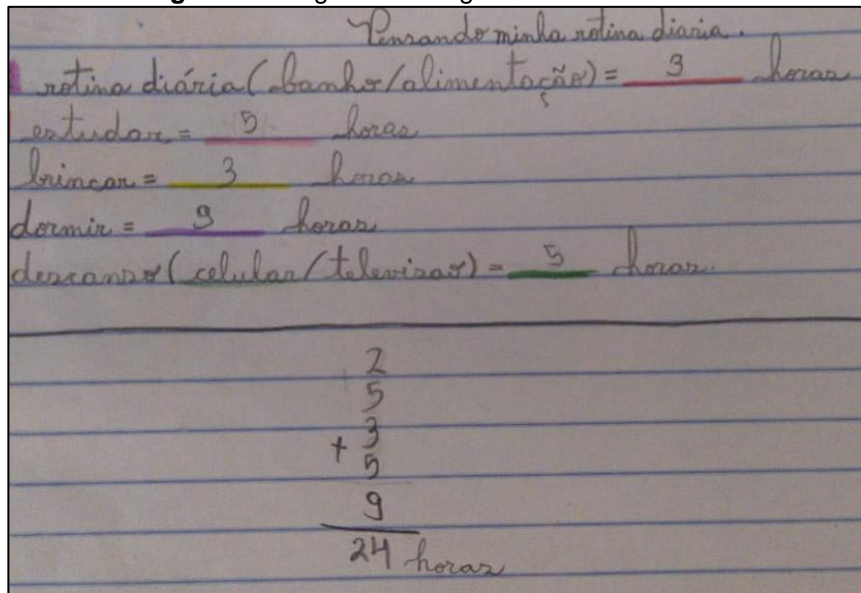 Pensando minha rotina diaria.
rotina diária (banho/alimentação) = 3 horas
estudar = 5 horas
brincar = 3 horas
dormir = 9 horas
descanso (celular/televisao) = 5 horas.
2
5
+ 3
5
9
24 horas